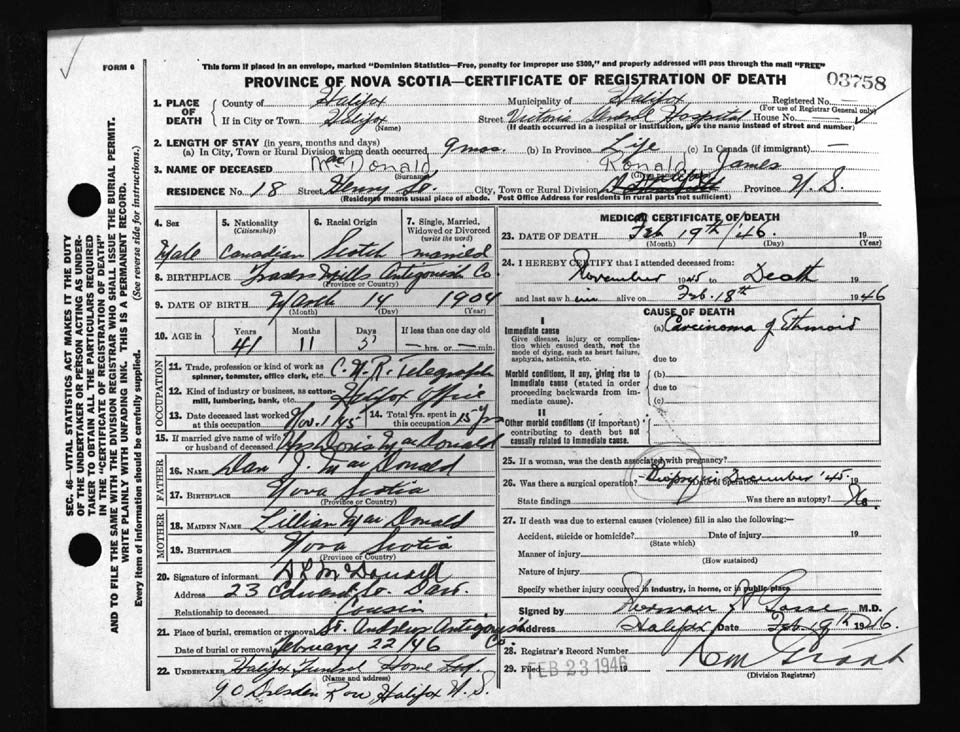 FORM 6
This form if placed in an envelope, marked "Dominion Statistics—Free, penalty for improper use $300," and properly addressed will pass through the mail "FREE"
PROVINCE OF NOVA SCOTIA—CERTIFICATE OF REGISTRATION OF DEATH
03758
SEC. 46—VITAL STATISTICS ACT MAKES IT THE DUTY
OF THE UNDERTAKER OR PERSON ACTING AS UNDER-
TAKER TO OBTAIN ALL THE PARTICULARS REQUIRED
IN THE "CERTIFICATE OF REGISTRATION OF DEATH"
AND TO FILE THE SAME WITH THE DIVISION REGISTRAR WHO SHALL ISSUE THE BURIAL PERMIT.
WRITE PLAINLY WITH UNFADING INK. THIS IS A PERMANENT RECORD.
Every item of information should be carefully supplied. (See reverse side for instructions.)
1. PLACE OF DEATH County of Halifax Municipality of Halifax Registered No. —
(For use of Registrar General only)
If in City or Town Halifax Street Victoria General Hospital House No. —
(Name) (If death occurred in a hospital or institution, give the name instead of street and number)
2. LENGTH OF STAY (in years, months and days)
(a) In City, Town or Rural Division where death occurred 9 mos. (b) In Province Life (c) In Canada (if immigrant) —
3. NAME OF DECEASED MacDonald Ronald James
(Surname)
RESIDENCE No. 18 Street Henry St. City, Town or Rural Division Province N.S.
(Residence means usual place of abode. Post Office Address for residents in rural parts not sufficient)
4. Sex Male
5. Nationality (Citizenship) Canadian
6. Racial Origin Scotch
7. Single, Married, Widowed or Divorced (write the word) married
8. BIRTHPLACE Frasers Mills Antigonish Co.
(Province or Country)
9. DATE OF BIRTH March 14 1904
(Month) (Day) (Year)
10. AGE in Years 41 Months 11 Days 5 If less than one day old — hrs. or — min.
OCCUPATION
11. Trade, profession or kind of work as spinner, teamster, office clerk, etc. C.N.R. Telegraph
12. Kind of industry or business, as cotton-mill, lumbering, bank, etc. Halifax Office
13. Date deceased last worked at this occupation Nov. 1/45 14. Total yrs. spent in this occupation 15 yrs
15. If married give name of wife or husband of deceased MacDonald
FATHER
16. NAME Dan J. MacDonald
17. BIRTHPLACE Nova Scotia
(Province or Country)
MOTHER
18. MAIDEN NAME Lillian MacDonald
19. BIRTHPLACE Nova Scotia
(Province or Country)
20. Signature of informant McDonald
Address 23 Edward St. Dart.
Relationship to deceased Cousin
21. Place of burial, cremation or removal St. Andrews Antigonish Co.
Date of burial or removal February 22/46
22. UNDERTAKER Halifax Funeral Home Ltd.
(Name and address)
90 Dresden Row Halifax N.S.
MEDICAL CERTIFICATE OF DEATH
23. DATE OF DEATH Feb 19th/46. 19
(Month) (Day) (Year)
24. I HEREBY CERTIFY that I attended deceased from:
November 1945 to Death 19
and last saw him alive on Feb. 18th 1946
CAUSE OF DEATH
I
Immediate cause (a) Carcinoma of Ethmoid
Give disease, injury or complication which caused death, not the mode of dying, such as heart failure, asphyxia, asthenia, etc.
due to
Morbid conditions, if any, giving rise to immediate cause (stated in order proceeding backwards from immediate cause).
(b)
due to
(c)
II
Other morbid conditions (if important) contributing to death but not causally related to immediate cause.
25. If a woman, was the death associated with pregnancy?
26. Was there a surgical operation? Biopsy in December '45 Date of operation 19
State findings Was there an autopsy? No.
27. If death was due to external causes (violence) fill in also the following:—
Accident, suicide or homicide? Date of injury 19
(State which)
Manner of injury
(How sustained)
Nature of injury
Specify whether injury occurred in industry, in home, or in public place
Signed by Norman H. Gosse M.D.
Address Halifax Date Feb. 19th 1946.
28. Registrar's Record Number
29. Filed FEB 23 1946 19
(Division Registrar)